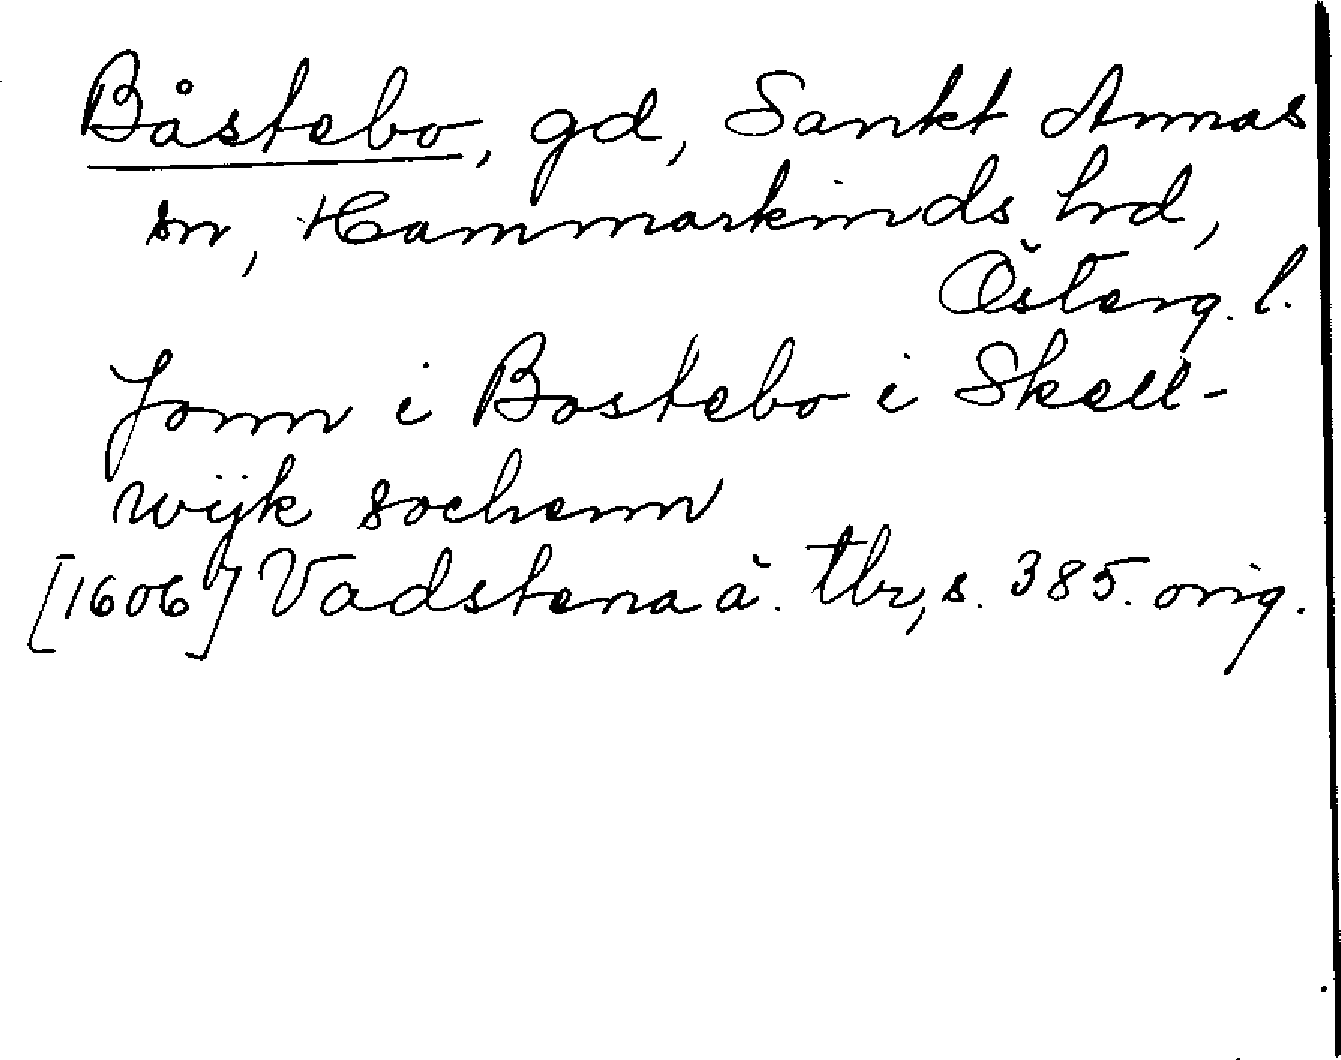 Båstebo, gd, Sankt Annas
sn, Hammarkinds hrd,
Österg. l.
Jonn i Bostebo i Skell-
wijk sochenn
[1606] Vadstena ä. tbr, s. 385. orig.